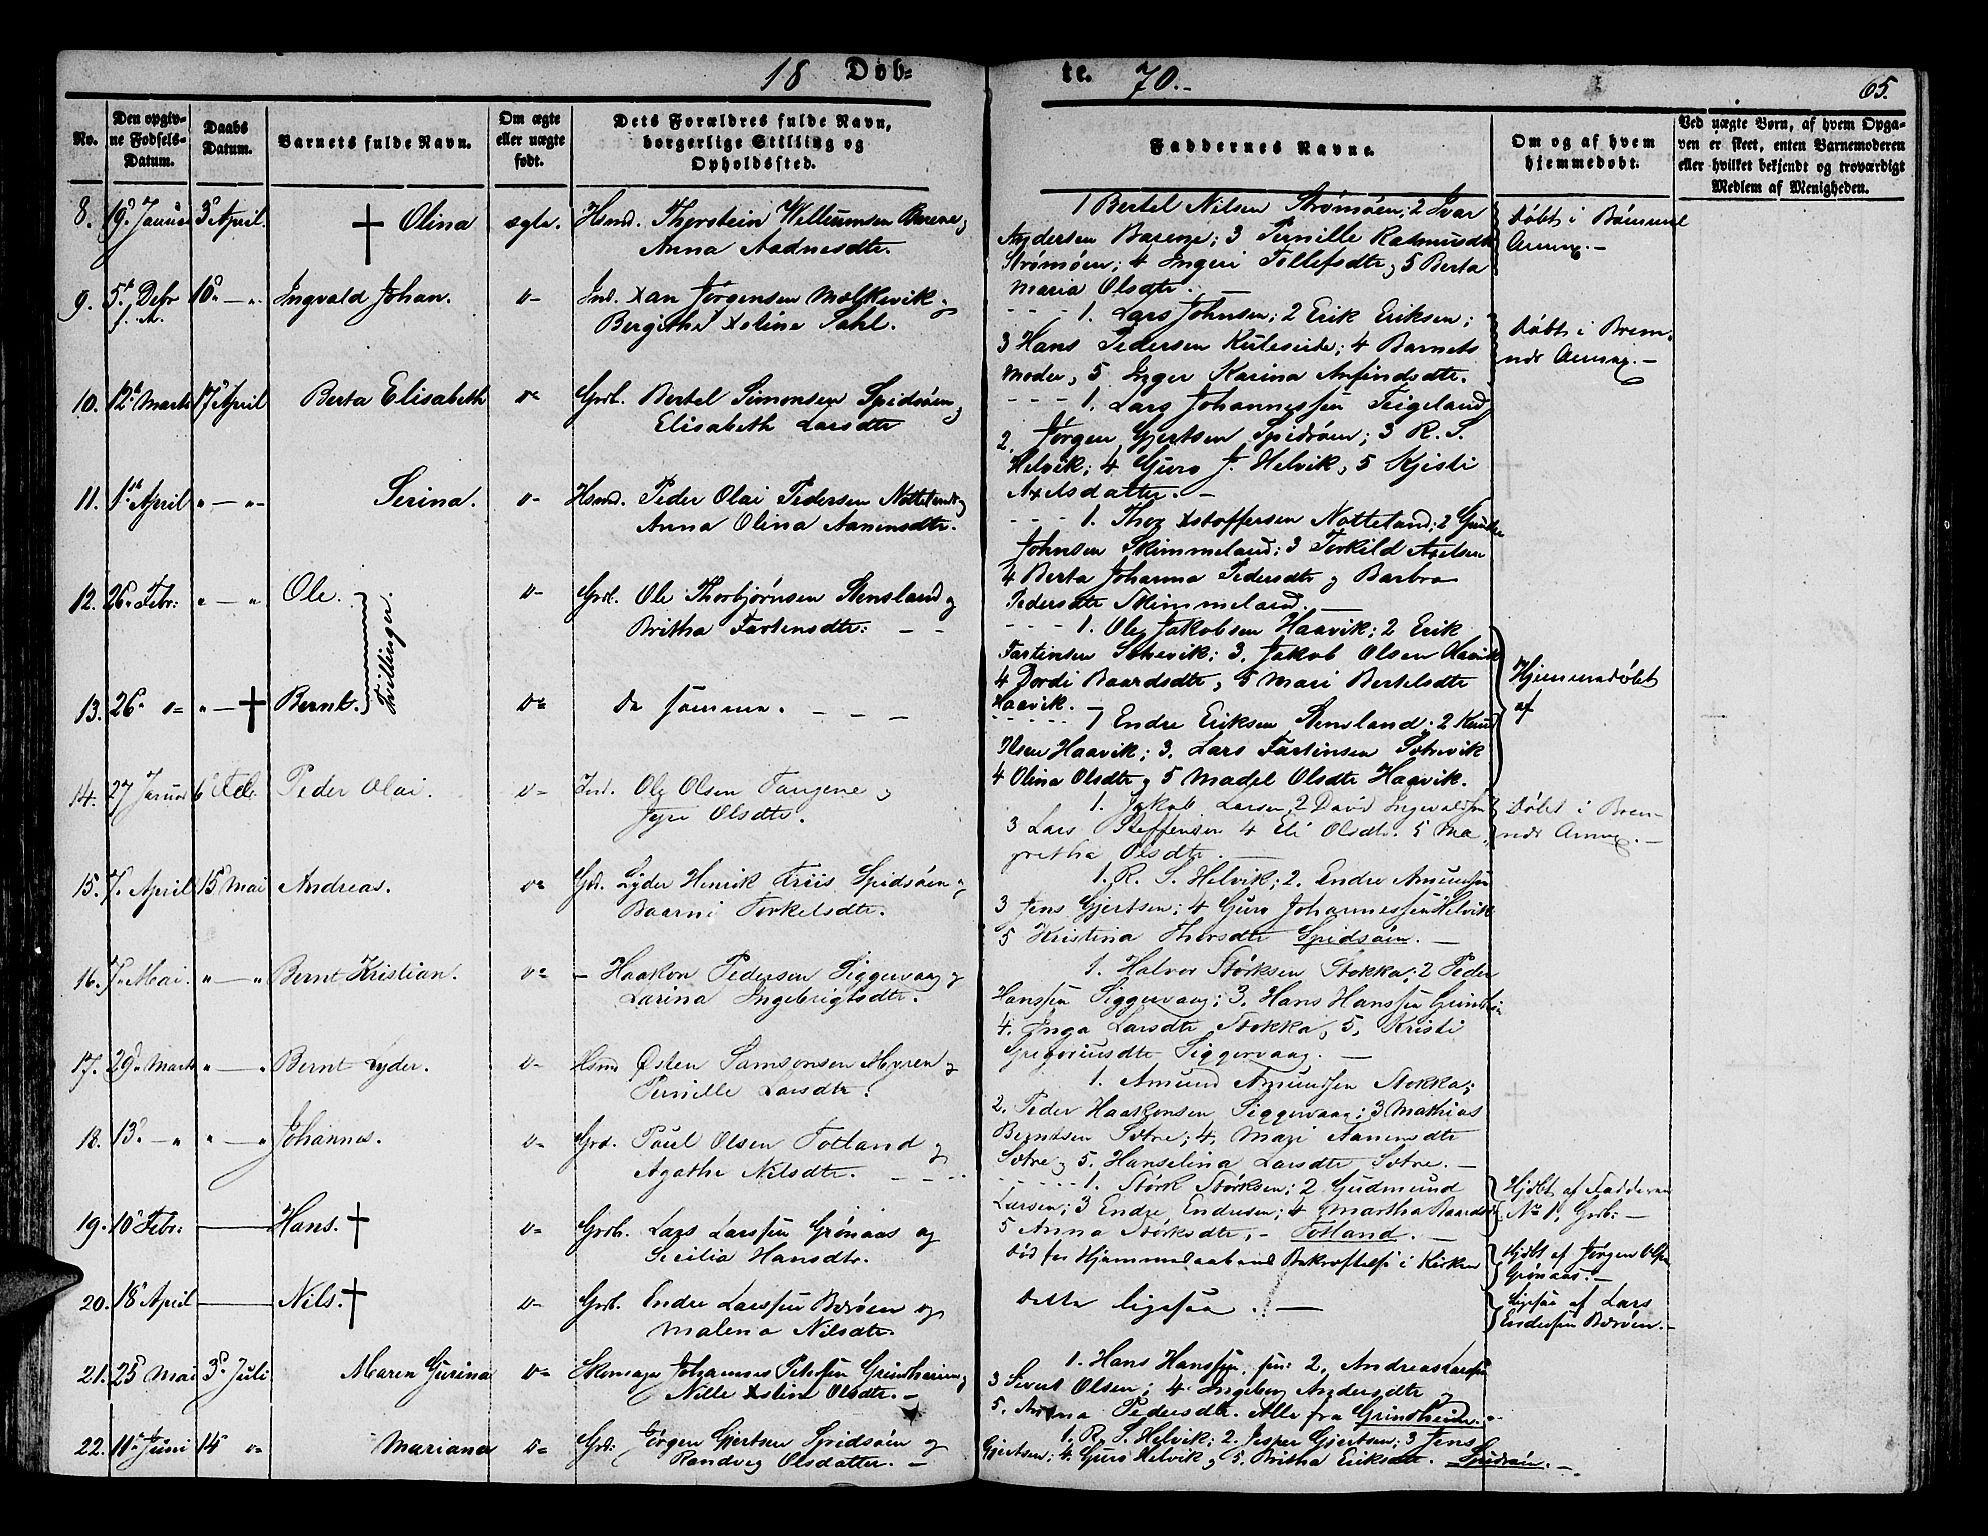 18 Døb=
te. 70.-
65.
No.
Den opgiv-
ne Fødsels-
Datum.
Daabs
Datum.
Barnets fulde Navn.
Om ægte
eller uægte
født.
Dets Forældres fulde Navn,
borgerlige Stilling og
Opholdssted.
Faddernes Navne.
Om og af hvem
hjemmedøbt.
Ved uægte Børn, af hvem Opga-
ven er skeet, enten Barnemoderen
eller hvilket bekjendt og troværdigt
Medlem af Menigheden.
8. 19 Januar 3 April. † Olina ægte. Hsmd. Thorstein Willumsen Barene og
Anna Aadnesdtr.
1 Bertel Nilsen Strømøen; 2 Ivar
Andersen Barene; 3 Pernille Rasmusdtr
Strømøen; 4 Ingeri Tollefsdtr og 5 Berta
Maria Olsdtr.
Døbt i Bømmel
Annex.-
9. 5 Debr f. A. 10 - " - Ingvald Johan. d- Ind. Xan Jørgensen Molkevik og
Bergitha Xeline Dahl.
1. Lars Johnsen; 2 Erik Eriksen;
3 Hans Pedersen Kuleseide; 4 Barnets
Moder, 5 Inger Karina Anfindsdtr.
Døbt i Brem-
nes Annex.-
10. 12 Marts 17 April Berta Elisabeth do Grdb. Bertel Simonsen Spidsøen og
Elisabeth Larsdtr
1. Lars Johannessen Teigeland
2. Jørgen Gjertsen Spidsøen; 3 R. S.
Helvik; 4 Guro J. Helvik, 5 Kjisti
Axelsdatter.-
11. 1 April " - " - Serina. d- Hsmd. Peder Olai Pedersen Notteland og
Anna Olina Aanensdtr.
1. Thor Xstoffersen Notteland; 2
Johnsen Skimmeland; 3 Torkild Axelsen
4 Berta Johanna Pedersdtr og Barbra
Pedersdtr Skimmeland.-
12. 26 Febr: " - " Ole. Tvillinger. d- Grd. Ole Thorbjørnsen Stensland og
Britha Fartensdtr: - -
1. Ole Jakobsen Haavik; 2 Erik
Fartinsen Sætrevik; 3. Jakob Olsen Haavik
4 Dordi Baardsdtr, 5 Mari Bertelsdtr
Haavik.-
Hjemmedøbt
af
13. 26 d= " - † Bernt. do De samme. - - -
1 Endre Eriksen Stensland; 2 Knud
Olsen Haavik; 3. Lars Fartinsen Sætrevik
4 Olina Olsdtr og 5 Madel Olsdtr Haavik.
14. 27 Januar 6 Febr. Peder Olai. d= Ind. Ole Olsen Tangene og
Olsdtr.
1. Jakob Larsen, 2 David Ingevaldsen
3 Lars Steffensen 4 Eli Olsdtr. 5 Ma-
gretha Olsdtr.-
Døbt i Brem-
nes Annex.-
15. 7 April 15 Mai Andreas. do Grd. Lyder Henrik Friis Spidsøen og
Baarni Torkelsdtr.
1. R. S. Helvik; 2. Endre Amundsen
3 Jens Gjertsen; 4 Guro Johannessen Helvik
5 Kristina Thorsdtr Spidsøen.-
16. 7 Mai. " - " Bernt Kristian. do - Haakon Pedersen Siggervaag og
Larina Ingebrigtsdtr.
1. Halvor Størksen Stokka; 2 Peder
Hanssen Siggervaag; 3. Hans Hanssen
4. Inga Larsdtr Stokka, 5, Kristi
Gregoriusdtr Siggervaag.-
17. 29 Marts " - " Bernt Lyder. d- Hsmd Østen Samsonsen Myren og
Pernille Larsdtr.
1. Amund Amundsen Stokka;
2. Peder Haakonsen Siggervaag; 3 Mathias
Berntsen Sætre; 4. Mari Aanensdtr
Sætre og 5. Hanselina Larsdtr Sætre.-
18. 13 - " " - " Johannes. d- Grd. Paul Olsen Totland og
Agatha Nilsdtr. - - -
1. Størk Størksen; 2 Gudmund
Larsen; 3 Endre Endresen; 4 Martha Baardsdtr
5 Anna Størksdtr, - Totland.-
Hjdbt af Fadderen
No 1, Grdb:-
19. 10 Febr: - Hans. † d- Grdb. Lars Larssen Grønaas og
Sicilia Hansdtr.
Død før Hjemmedaabens Bekræftelse i Kirken
Hjdbt af Jørgen Olsen
Grønaas.-
20. 18 April - Nils. † d- Grdb. Endre Larssen Børøen og
Malena Nilsdtr.
Dette ligesaa.-
ligesaa af Lars
Endresen Børøen.-
21. 25 Mai 3 Juli Maren Gurina do Skomager Johannes Petersen Grindheim og
Nille Xstine Olsdtr.-
1. Hans Hanssen sen: 2, Andreas Larsen
3 Sivert Olsen; 4 Ingeborg Andersdtr
5. Anna Pedersdtr. Alle fra Grindheim.-
22. 11 Juni 14 do Mariana d= Grd: Jørgen Gjertsen Spidsøen og
Randveg Olsdatter.-
1. R. S. Helvik; 2. Jesper Gjertsen; 3 Jens
Gjertsen; 4. Guro Helvik og 5. Britha Eriksdtr. Spidsøen.-